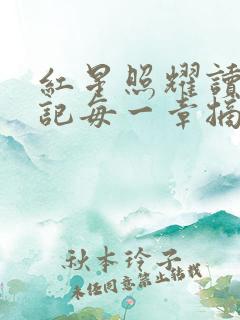 紅星照耀讀
記每一章摘
秋本玲子
未经同意禁止转载